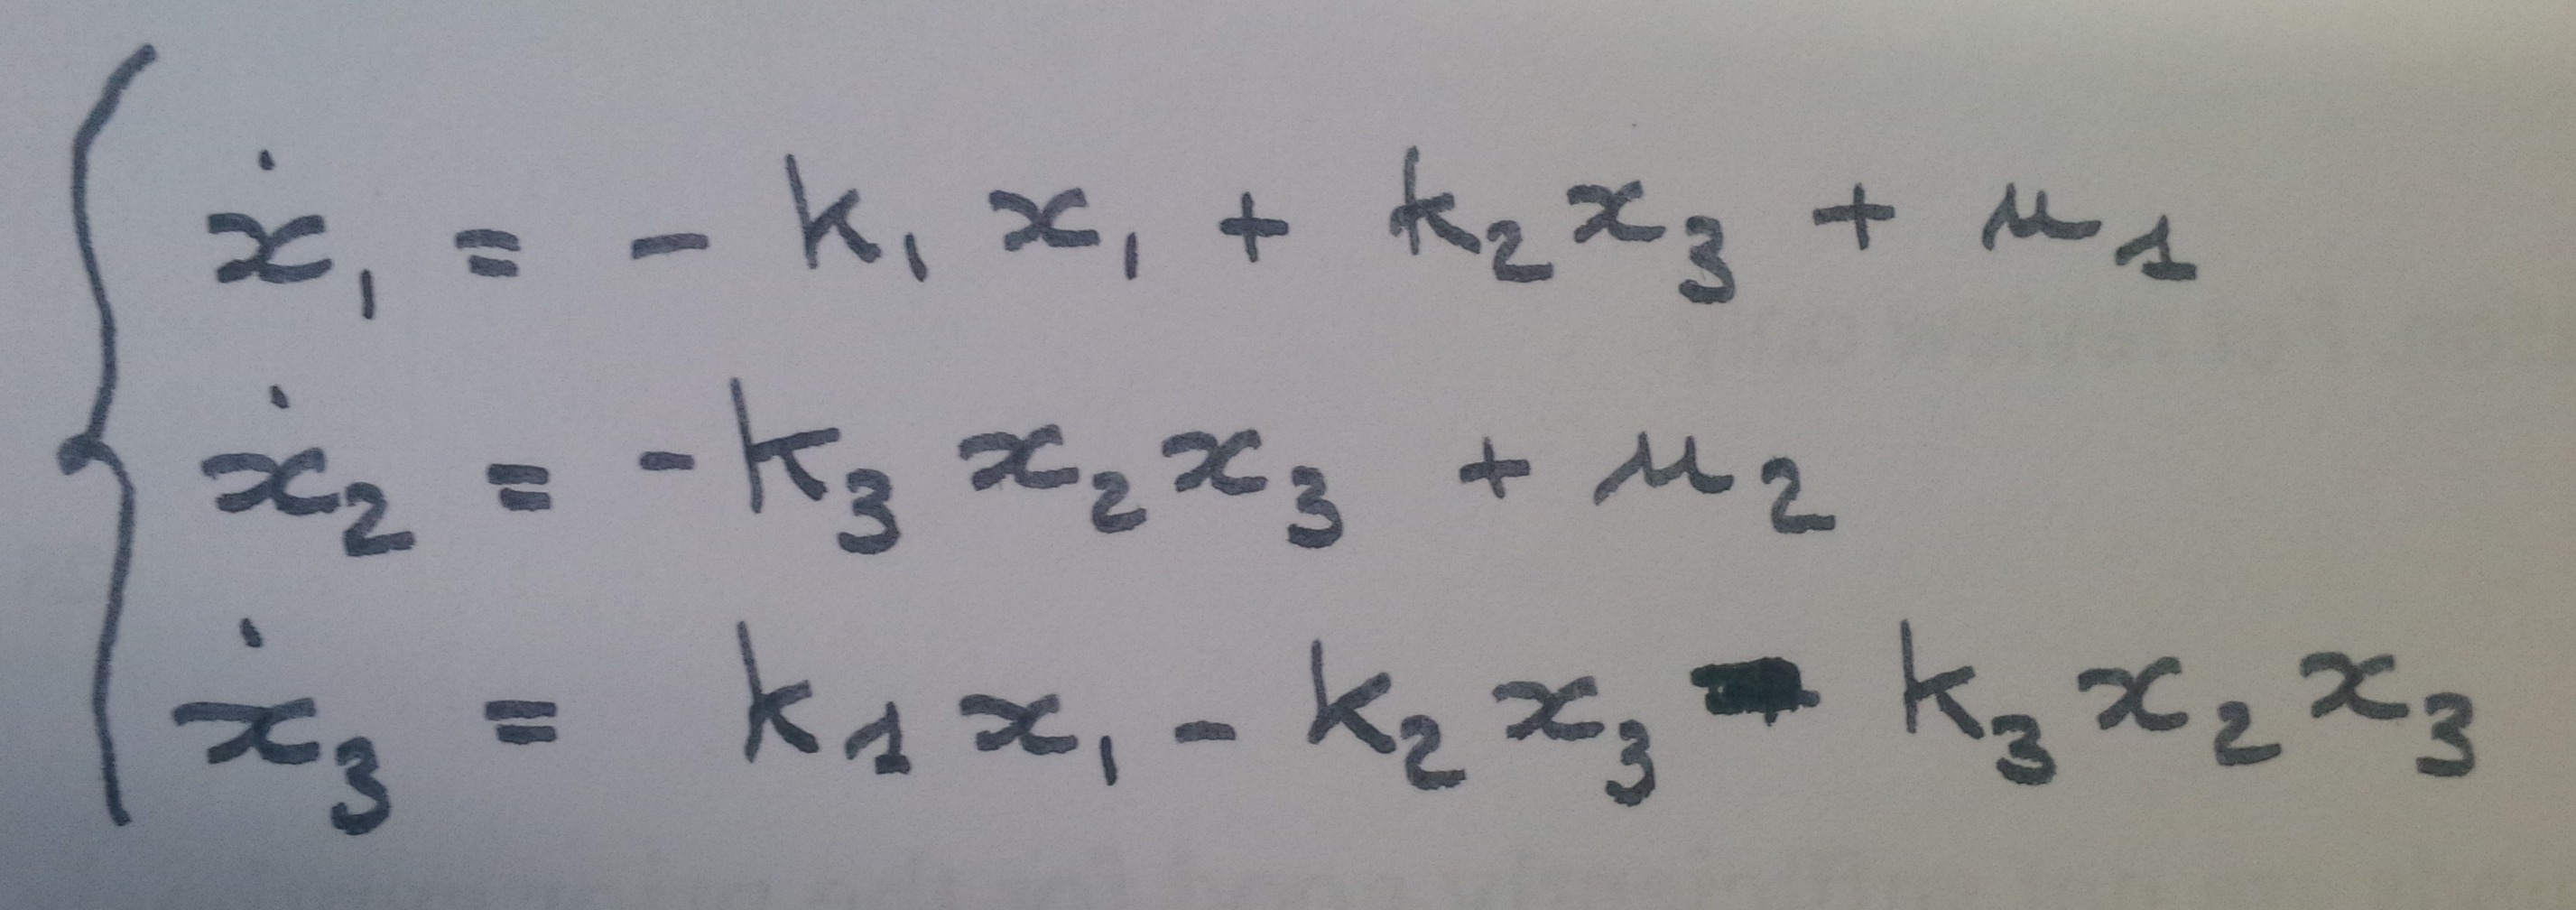 ẋ₁ = - k₁ x₁ + k₂ x₃ + u₁
ẋ₂ = - k₃ x₂ x₃ + u₂
ẋ₃ = k₁ x₁ - k₂ x₃ - k₃ x₂ x₃